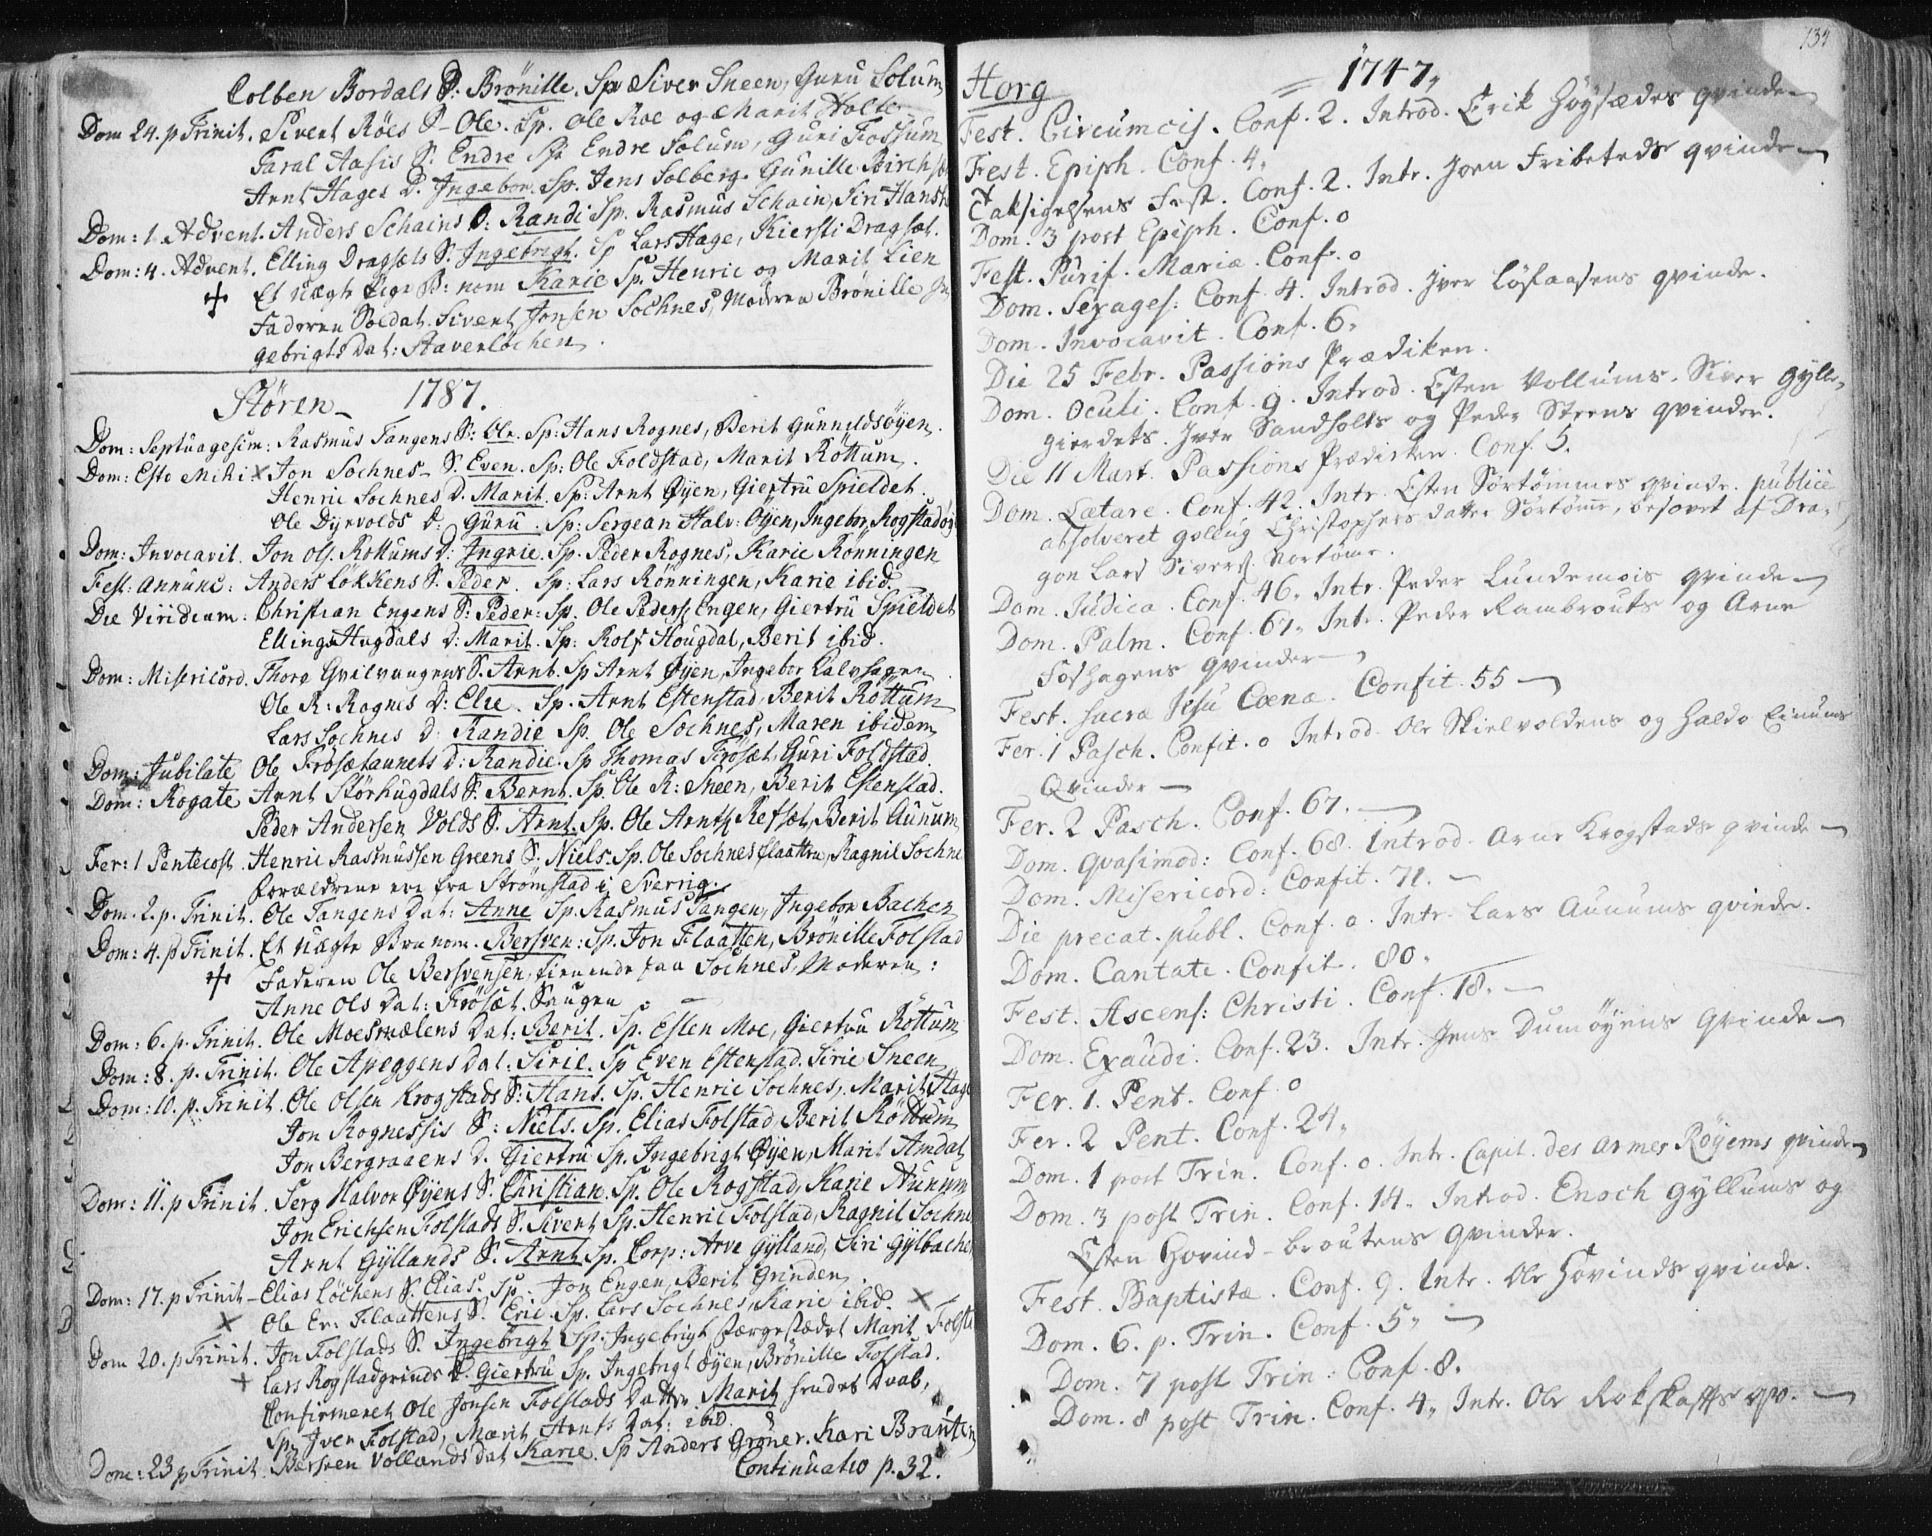 Colben Bordals D: Brönille. Sp. Siver Sneen, Guru Solum
Dom 24. p Trinit. Sivert Röes S- Ole. Sp. Ole Roe og Marit Holte
Taral Aasis S. Endre Sp. Endre Solum, Guri Fossum
Arnt Hages D. Ingebor. Sp. Jens Solberg. Gunille
Dom: 1. Advent. Anders Schains D: Randi Sp. Rasmus Schain, Siri
Dom: 4. Advent. Elling Dragsets S. Ingebrigt. Sp Lars Hage, Kiersti Dragset.
Et uægte Pige B: nom Karie Sp. Henric og Marit Lien
Faderen Soldat. Sivert Jonsen Sochnes, Moderen Brönille In
gebrigts Dat: Staverløchen
Støren 1787.
Dom: Septuagesim: Rasmus Tangens S: Ole. Sp: Hans Rognes, Berit Gunnildsøyen.
Dom: Esto Mihi x Jon Sochnes S. Even. Sp: Ole Foldstad, Marit Röttum.
Henric Sochnes D. Marit. Sp: Arnt Øyen, Giertru Spieldet.
Ole Dyrvolds D: Guru. Sp: Sergean Halv: Öyen, Ingebor Rogstad
Dom: Invocavit. Jon Ols. Rottums D: Ingrie. Sp. Peder Rognes, Karie Rönningen
Fest: Annunc: Anders Lökkens S. Peder. Sp: Lars Rönningen, Karie ibid.
Die Viridium: Christian Engens S: Peder: Sp. Ole Peders. Engen, Giertru Spieldet
Elling Hugdals D: Marit. Sp: Rolf Hougdal, Berit ibid.
Dom: Misericord. Thore S. Arnt. Sp Arnt Øyen, Ingebor
Ole R: Rognes D: Else. Sp. Arnt Estenstad, Berit Röttum
Lars Sochnes D: Randie Sp. Ole Sochnes, Maren ibidem
Dom: Jubilate Ole Frosætaunets D: Randie. Sp Thomas Frösæt, Guri Foldstad.
Dom: Rogate Arnt Störhugdals S. Bernt. Sp. Ole R: Sneen, Berit Estenstad.
Peder Andersen Volds S. Arnt. Sp. Ole Arnts. Refset, Berit Aunum
Fer: 1 Pentecost. Henric Rasmussen Greens S. Niels. Sp. Ole Sochnes flaatten, Ragnil Sochne
forældrene ere fra Strömstad i Sverrig.
Dom. 2. p. Trinit. Ole Tangens Dat: Anne Sp. Rasmus Tangen, Ingebor Bachen
Dom: 4. p Trinit. Et uægte Barn nom. Bersven: Sp. Jon Flaatten, Brönille Folstad
Faderen Ole Bersvensen tienende paa Sochnes, Moderen:
Anne Ols Dat: Frösæt. Saugen
Dom: 6. p. Trinit. Ole Dat: Berit. Sp. Esten Moe, Giertru Röttum
Dom: 8. p. Trinit. Ole Apeggens Dat: Sirie. Sp Even Estenstad. Sirie Sneen
Dom: 10. p. Trinit. Ole Olsen Krogstads S: Hans. Sp. Henric Sochnes, Marit Hage
Jon Rognessis S: Niels. Sp. Elias Folstad, Berit Röttum
Jon Bergraaens D. Giertru Sp. Ingebrigt Øyen, Marit Amdal
Dom: 11. p Trinit. Serg Halvor Øyens S. Christian. Sp. Ole Rogstad, Karie Aunum
Jon Erichsen Folstads S. Sivert Sp. Henric Folstad, Ragnil Sochne
Arnt Gyllands S. Arnt Sp. Corp: Arve Gylland, Siri Gylbache
Dom: 17. p Trinit Elias Löchens S. Elias. Sp. Jon Engen, Berit Grinden.
x Ole Er: Flaattens S. Eric Sp. Lars Sochnes, Karie ibid. x
Dom 20. p Trinit. Jon Folstads S. Ingebrigt Sp. Ingebrigt Marit
x Lars Rogstadgrinds D. Giertru Sp. Ingebrigt Øyen, Brönille Folstad.
Confirmeret Ole Jonsen Folstads Datter Marit
Sp. Iver Folstad, Marit Arnts Dat: ibid.
Dom: 23 p Trinit. Bersven Vollands Dat Karie. Sp Anders Gröner. Kari
Continuatio p. 32.
134
Horg 1747.
Fest. Circumcis. Conf. 2. Introd. Erik Høysædes qvinde
Fest. Epiph. Conf. 4.
Taksigelsens Fest. Conf. 2. Intr. Joen Fribeteds qvinde
Dom. 3 post Epiph. Conf. 0
Fest. Purif. Mariæ. Conf. 0
Dom. Sexages: Conf. 4. Introd. Iver Løsaasens qvinde.
Dom. Invocavit. Conf. 6.
Die 25 Febr. Passions Prædiken.
Dom. Oculi. Conf. 9. Introd. Esten Vollums. Siver Gylle-
gierdets. Iver Sandholts og Peder Steens qvinder.
Die 11 Mart. Passions Prædiken. Conf. 5.
Dom. Lætare. Conf. 42. Intr. Esten Sørtømmes qvinde. publice
absolveret Gollug Christophers datter Sørtømme, besovet af Dra-
gon Lars Sivers. Nortøme.
Dom. Judica. Conf. 46. Intr. Peder Lundemois qvinde
Dom. Palm. Conf. 67. Intr. Peder Rambrouts og Arne
Foshagens qvinder
Fest. sacræ Jesu Cœnæ. Confit. 55
Fer. 1 Pasch. Confit. 0 Introd. Ole Skielvoldens og Haldo Einums
Qvinder
Fer. 2 Pasch. Conf. 67.
Dom. Qvasimod: Conf. 68. Introd. Arne Krogstads qvinde
Dom. Misericord: Confit. 71.
Die precat. publ. Conf. 0. Intr. Lars Aunums qvinde.
Dom. Cantate. Confit. 80.
Fest. Ascens: Christi. Conf. 18.
Dom. Exaudi. Conf. 23. Intr. Jens Dumøyens Qvinde
Fer. 1. Pent. Conf 0
Fer. 2 Pent. Conf. 24.
Dom. 1 post Trin. Conf. 0. Intr. Capit. des Armes Røyems qvinde
Dom. 3 post Trin. Conf. 14. Introd. Enoch Gyllums og
Esten Hovind-broutens Qvinder.
Fest. Baptistæ. Conf. 9. Intr. Ole Hovinds qvinde.
Dom. 6. p. Trin. Conf. 5.
Dom. 7 post Trin: Conf. 8.
Dom. 8 post Trin. Conf. 4. Intr. Ole Rokskafts qv.